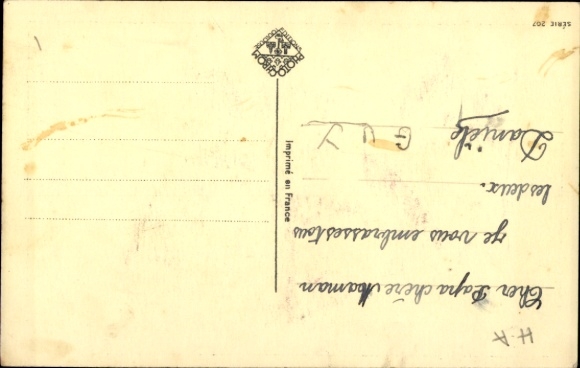 Cher Papa chère Maman
je vous embrasses tous
les deux.
Danièle
GUY
Imprimé en France
SÉRIE 207